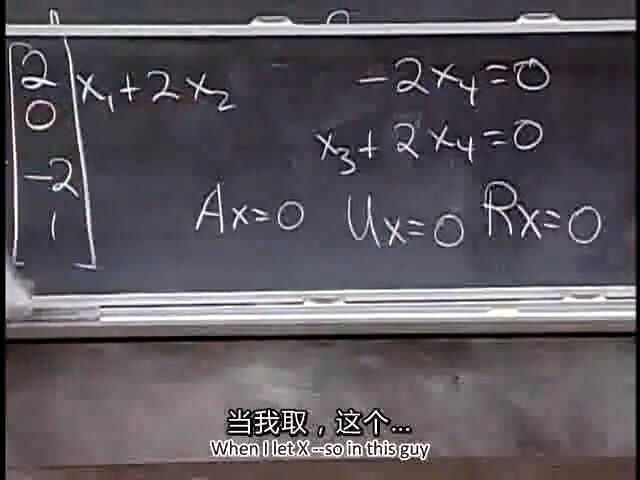 2
0
-2
1
x₁+2x₂ -2x₄=0
x₃+2x₄=0
Ax=0 Ux=0 Rx=0
当我取，这个...
When I let X --so in this guy